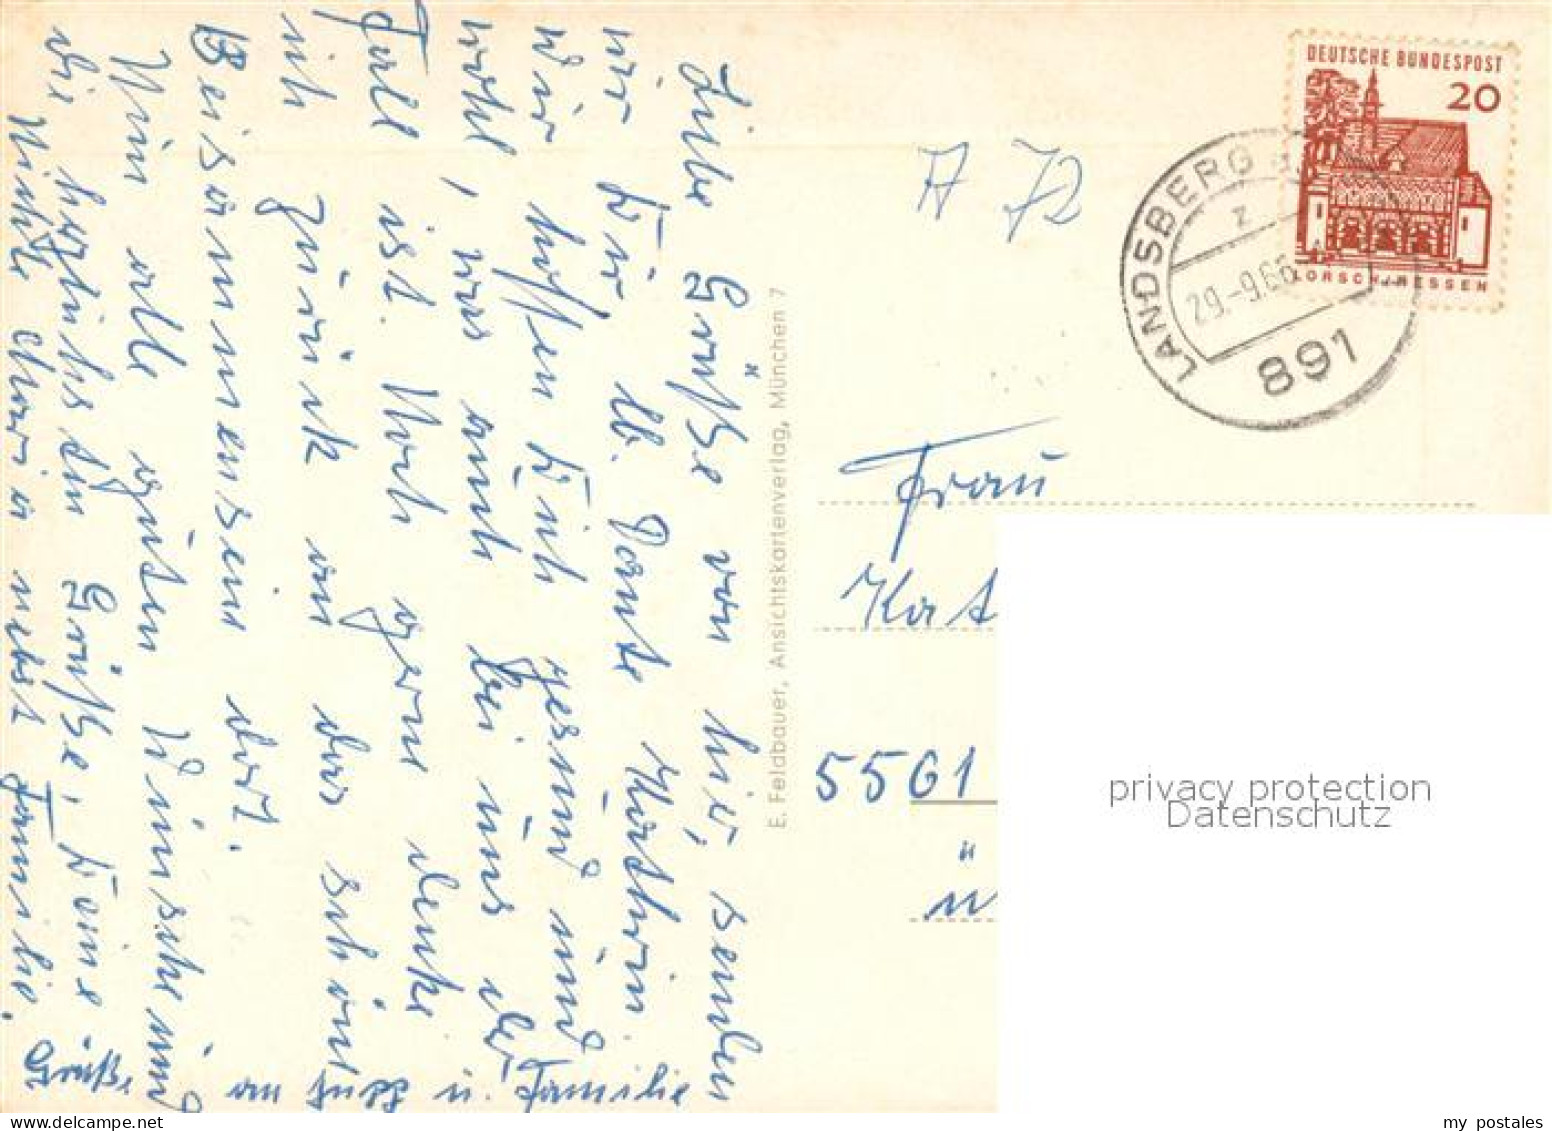 Liebe Grüße von hier, senden
wir Dir, lb. Tante Kathrin.
Wir hoffen Dich gesund und
wohl, was auch bei uns der
Fall ist. Noch gerne denke
ich zurück an das schöne
Beisammensein dort.
Nun alle guten Wünsche und
die herzlichsten Grüße, Deine
Nichte Maria nebst Familie.
Grüße an u. Familie
E. Feldbauer, Ansichtskartenverlag, München 7
A 72
DEUTSCHE BUNDESPOST
20
LORSCH/HESSEN
LANDSBERG
z
29.-9.66
891
Frau
Kat
5561
ü
privacy protection
Datenschutz
my postales